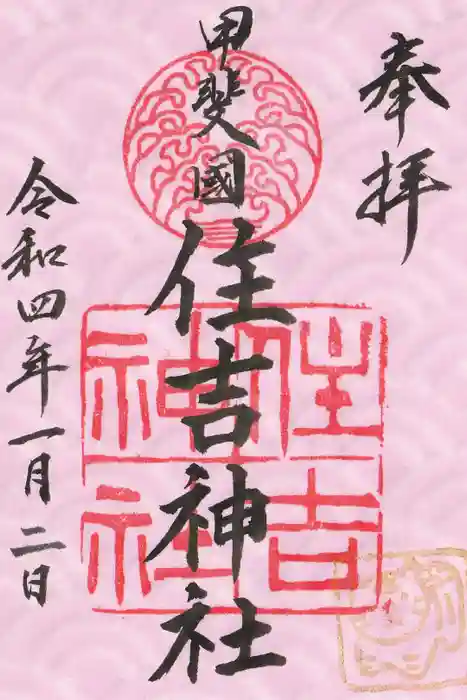 奉拝
甲斐國
住吉神社
令和四年一月二日
住吉
神社